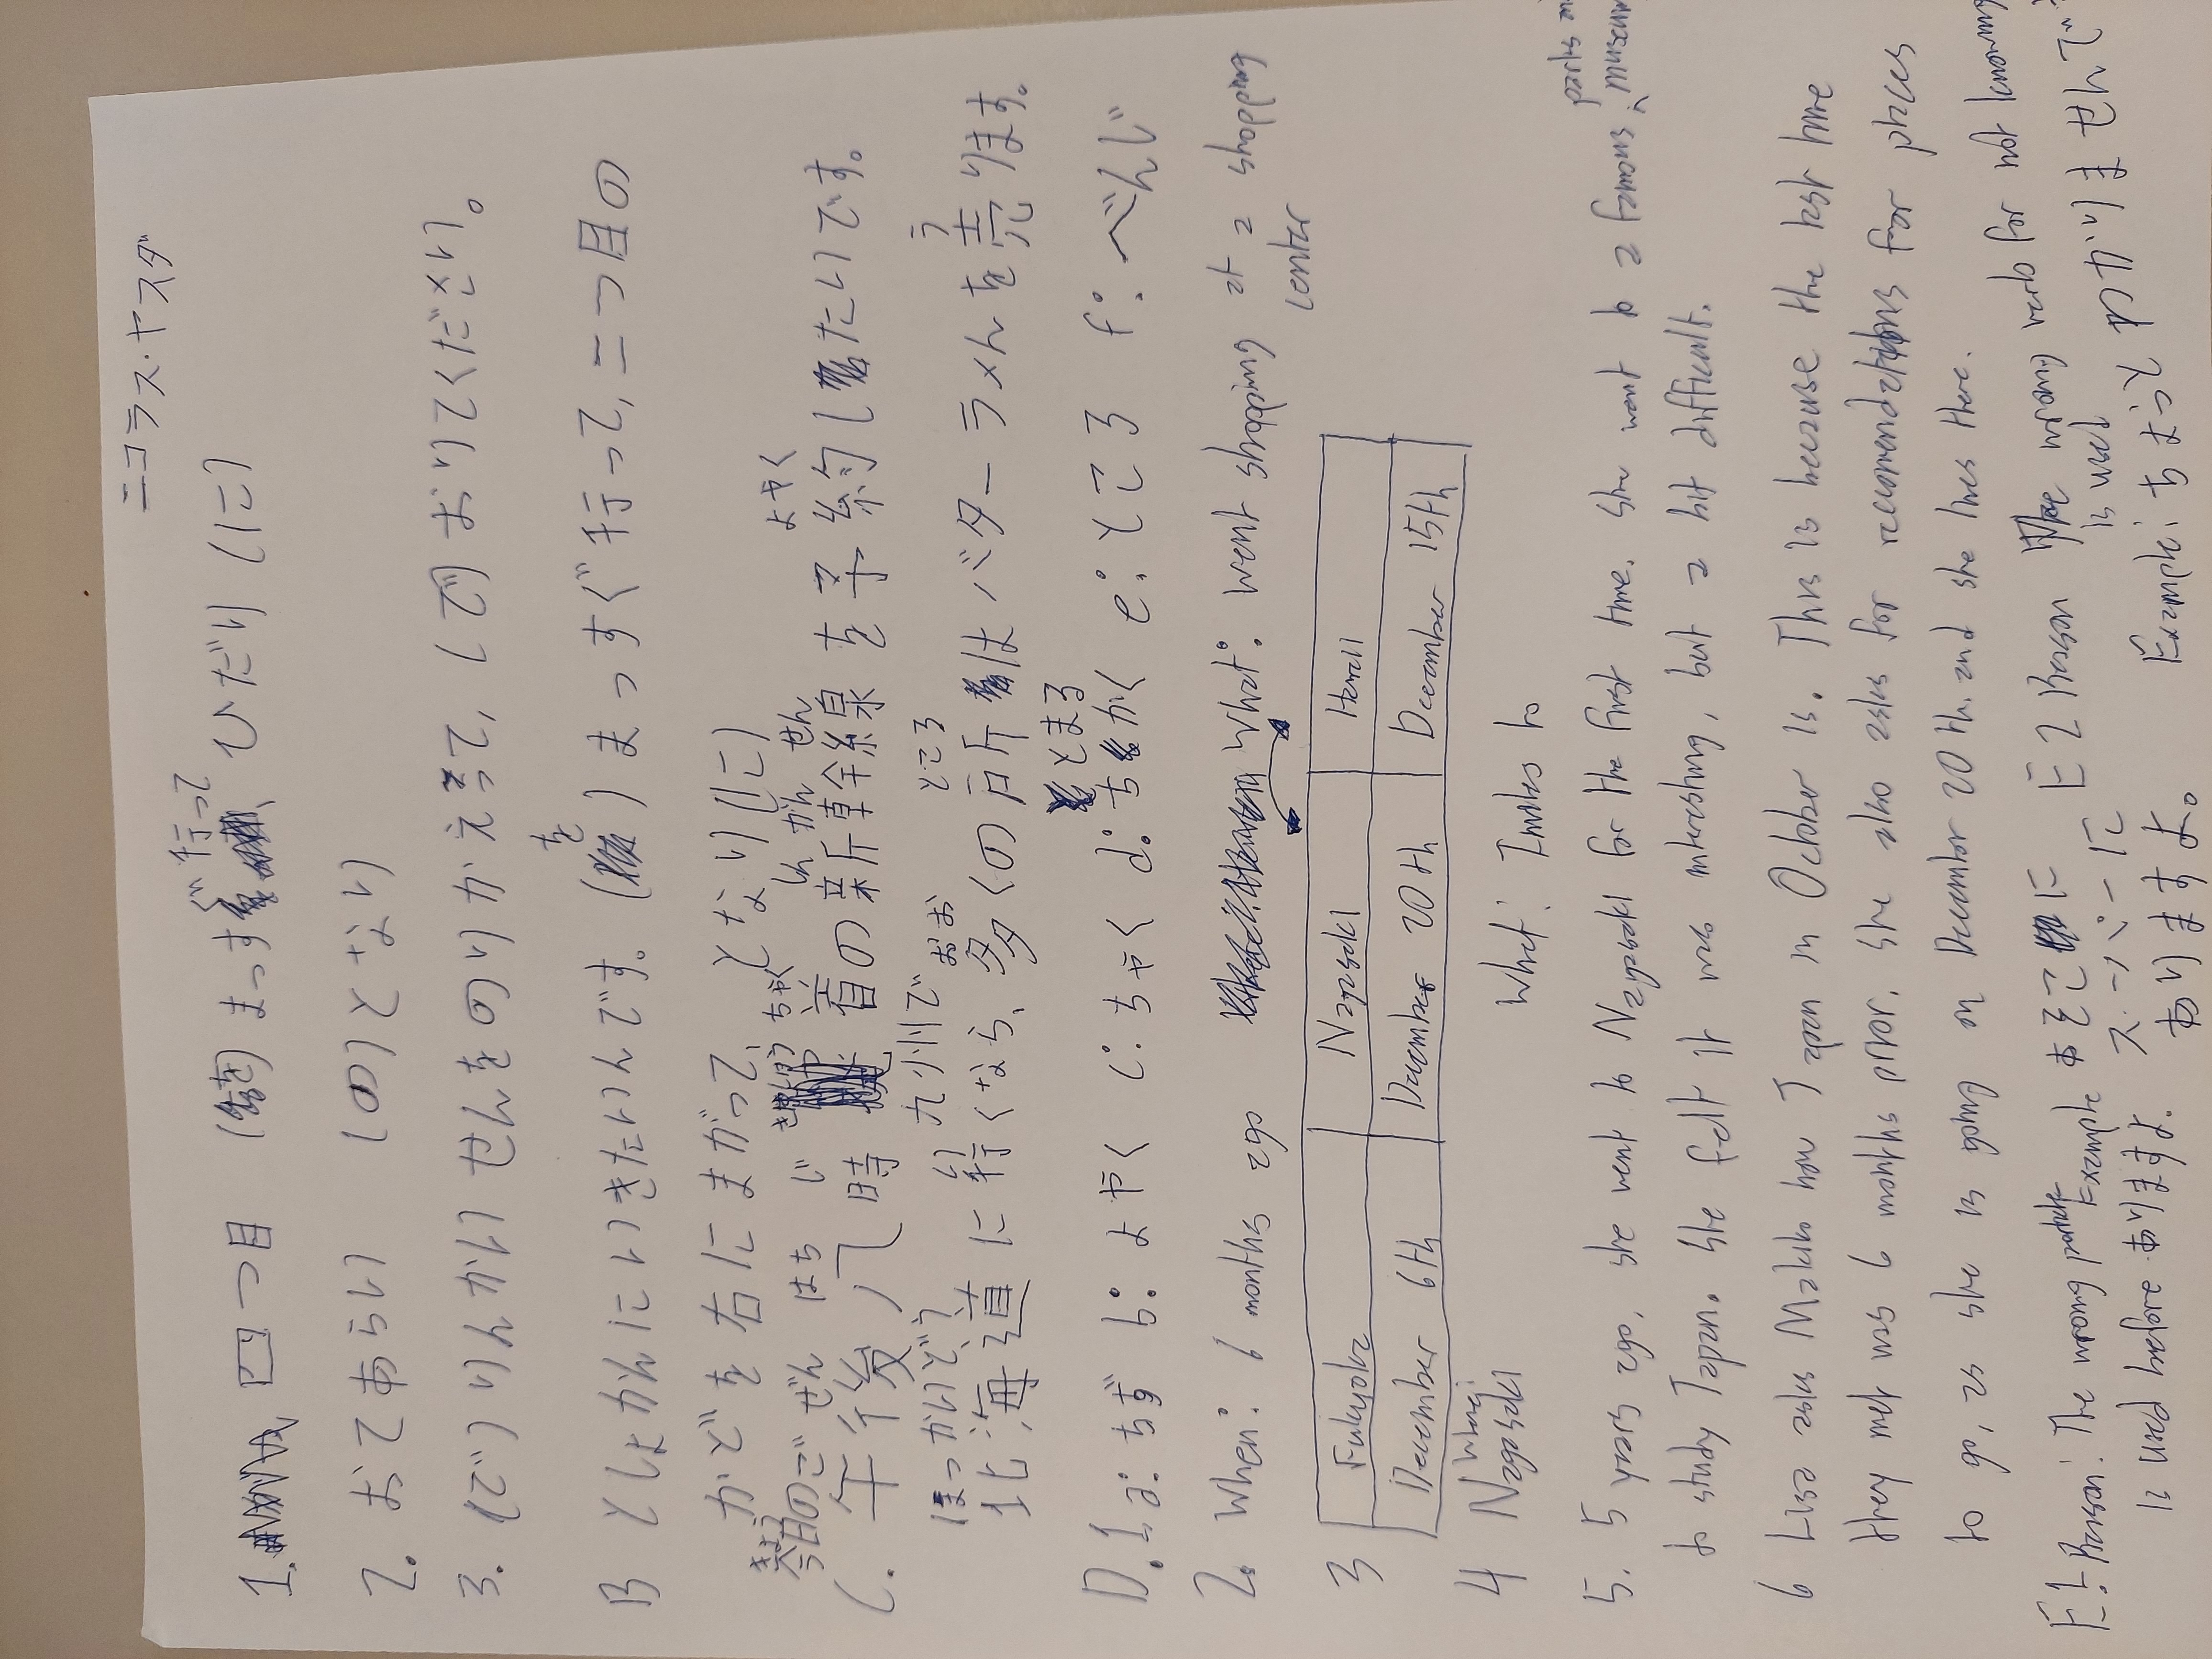 ニコラス・ヤスダ
ぐ 行って
1. 四つ目 (を) まっす ひだり (に)
2. おてあらい (の) となり
3. (で) りんかいせんをのりかえって, (で) おりてください。
を
B としょかんにいきたいんです。( ) まっすぐ行って, 二つ目の
かどを右にまがって, となり(に)
きょう ちゃく
今日のごぜん はち じ しんかんせん よやく
C. 午後八時 着の新幹線を予約したいです。
ほっかいどう い 九州で おお ところ う
北海道に行くなら、多くの所はバターラメんを売ります。
とまる
D.1 a: ちず b: よやく c: ちゃく d: ちかく e: ところ f: べんじ
2. When: 6 months ago What: Went shopping at a shopping
center
3 Fukuoka Nagasaki Hawaii
December 6th December 20th December 15th
4 Nagasaki What: Invites to
parks an
5. 5 years ago, she went to Nagasaki for the first time. She went to a famous museum
to study Japan. She felt it was interesting, but a bit difficult.
6 Lisa asks Makiko how Japan in October is. This is because the last time
they met was 6 months prior. She also asks for recomendations for places
to go, as she is going on December 20th. and she lives there.
E.1 Reason: The wrong particle
is used before ありますよ.
Example あそこに
スーパーに
ありますよ。
E 2 Reason The wrong verb for not knowing
is used
Example: ちょっとわかりませんで